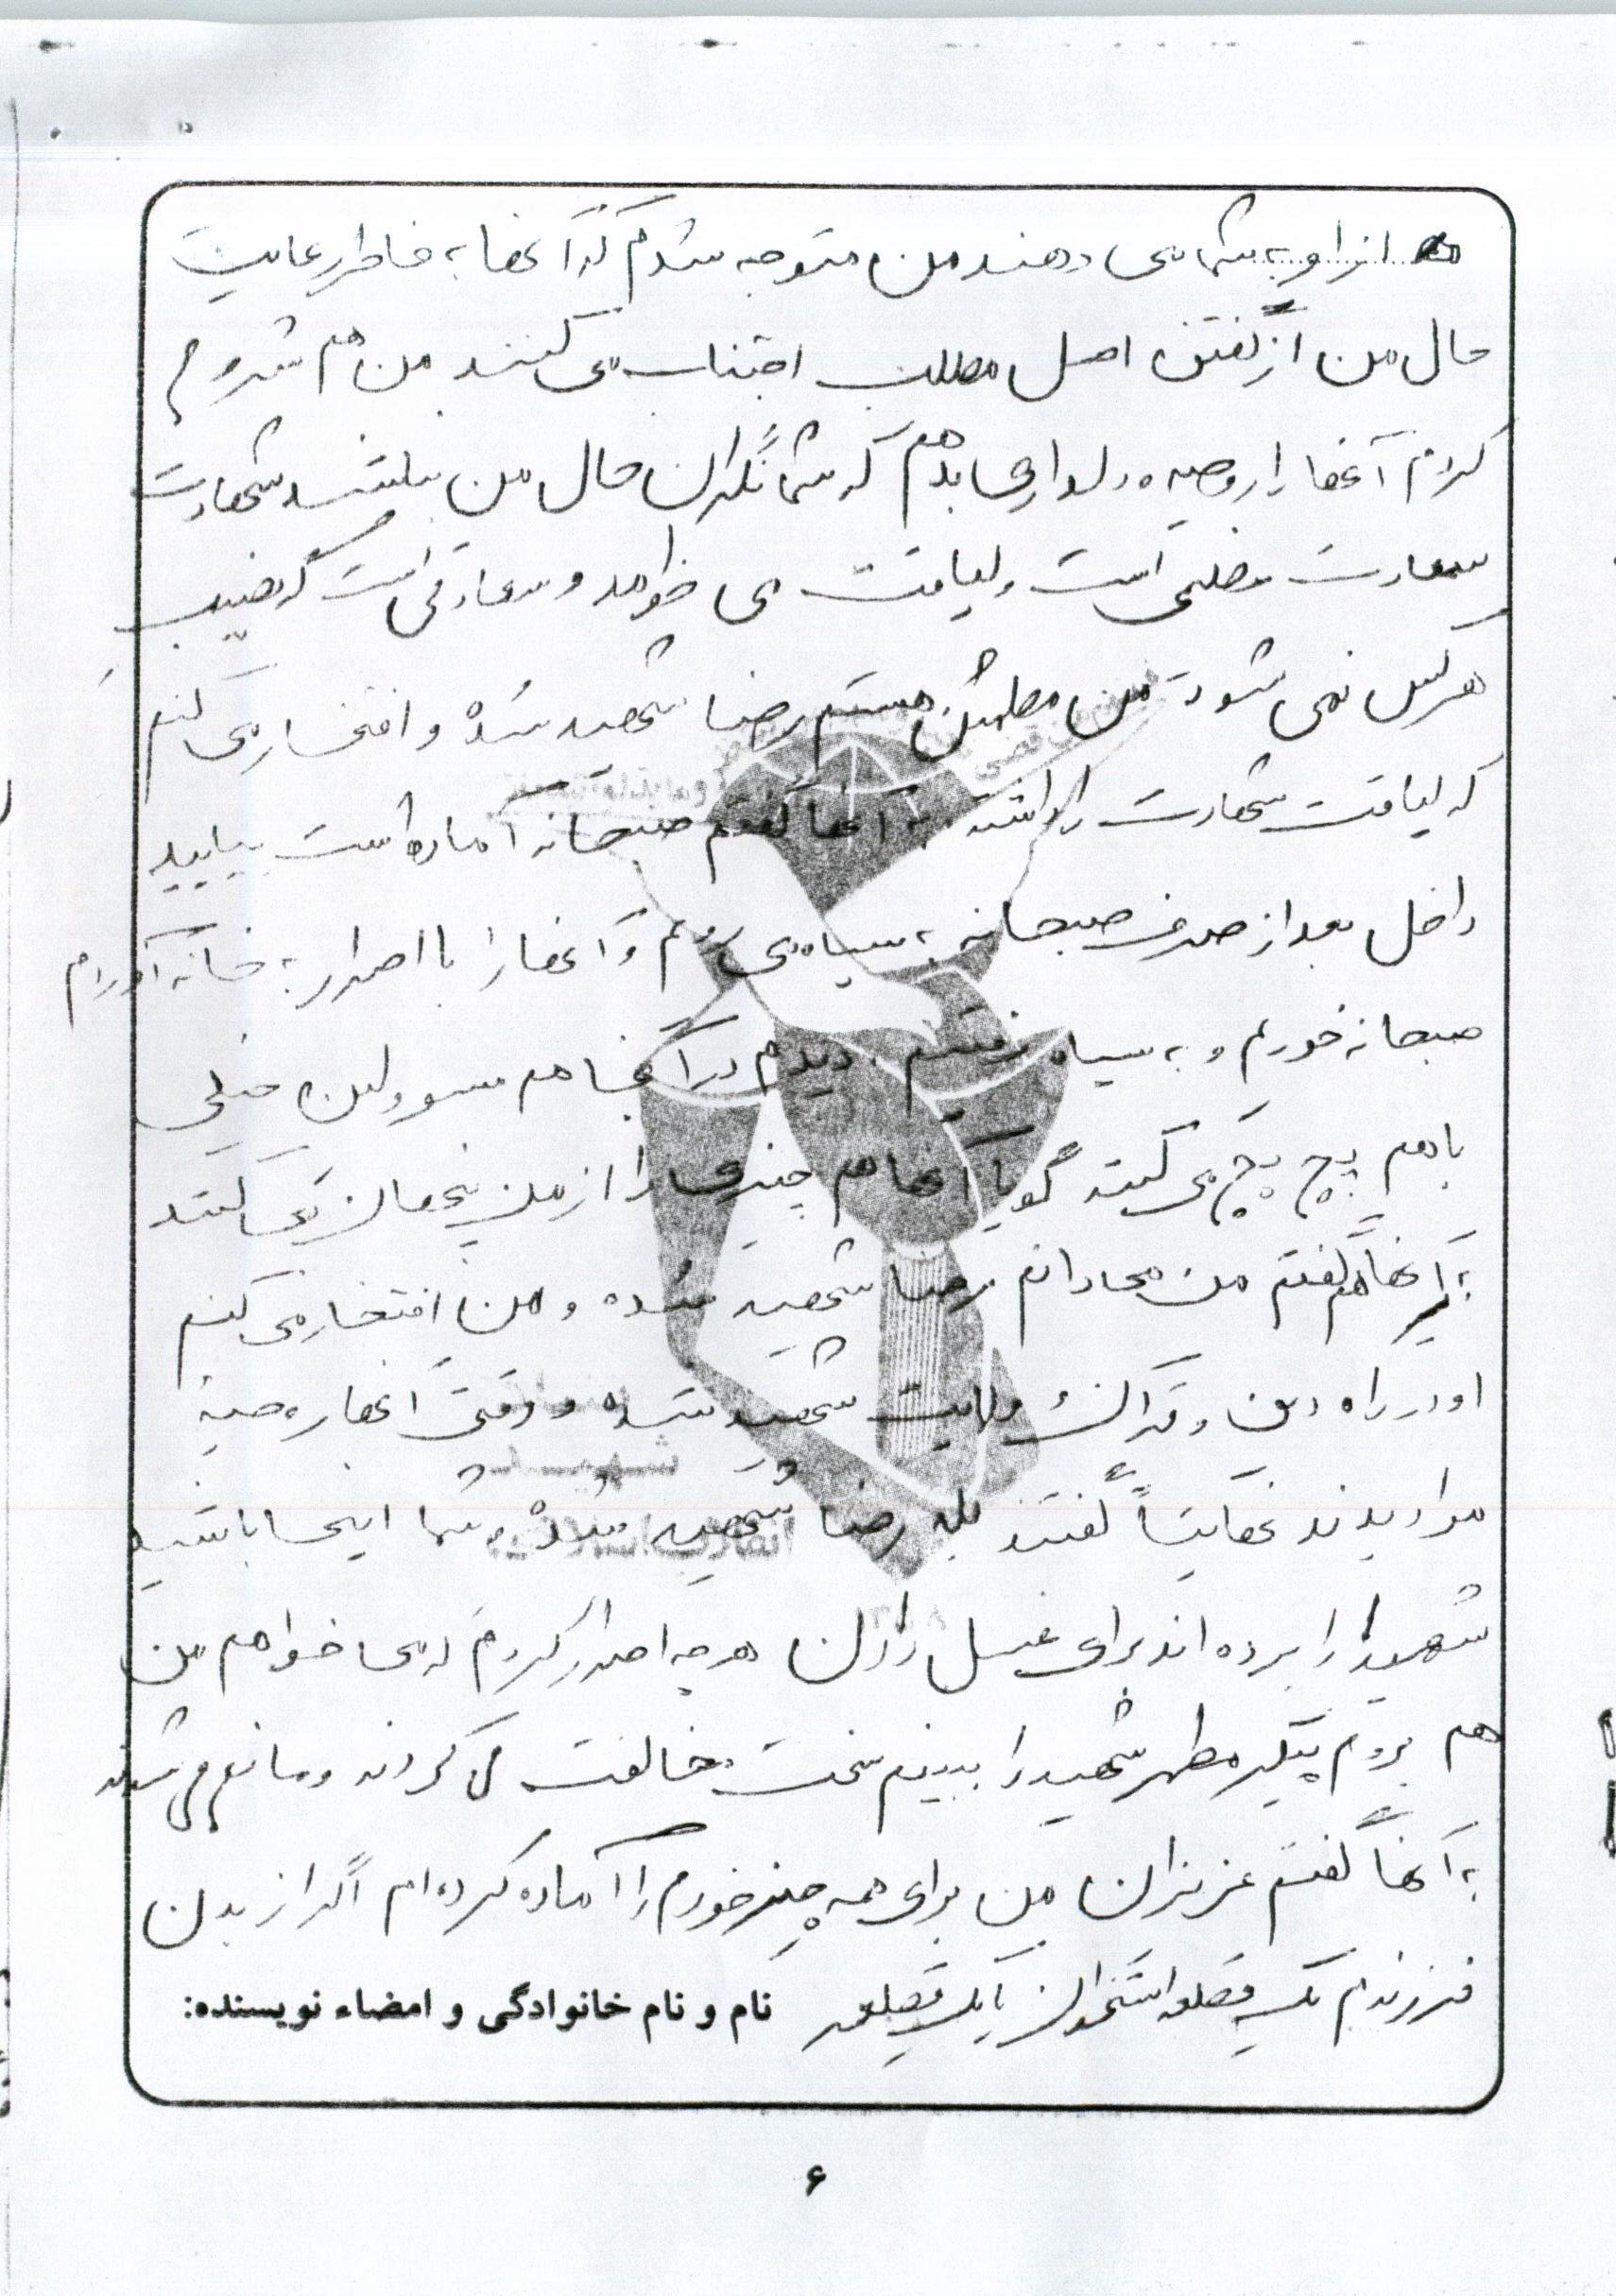 از او به شما می دهند من متوجه شدم که آنها به خاطر رعایت
حال من از گفتن اصل مطلب اجتناب می کنند من هم شروع
کردم آنها را روحیه و دلداری بدهم که شما نگران حال من نباشید شهادت
سعادت عظیمی است و لیاقت می خواهد و سعادتی است که نصیب
هر کس نمی شود من مطمئن هستم رضا شهید شده و افتخار می کنم
که لیاقت شهادت را داشته به آنها گفتم صبحانه آماده است بیایید
داخل بعد از صرف صبحانه به سپاه می رویم و آنها را با اصرار به خانه آوردم
صبحانه خوردیم و به سپاه رفتیم. دیدم در آنجا هم مسئولین خیلی
با هم پچ پچ می کنند گویا آنها هم چیزی را از من پنهان می کنند
به آنها هم گفتم من می دانم رضا شهید شده و من افتخار می کنم
او در راه دین و قرآن و ولایت شهید شده و وقتی آنها روحیه
مرا دیدند نهایتاً گفتند بله رضا شهید شده و شما اینجا باشید
شهید را برده اند برای غسل دادن هر چه اصرار کردم که می خواهم من
هم بروم پیکر مطهر شهید را ببینم سخت مخالفت می کردند و مانع می شدند
به آنها گفتم عزیزان من برای همه چیز خودم را آماده کرده ام اگر از بدن
فرزندم یک قطعه استخوان یا یک قطعه نام و نام خانوادگی و امضاء نویسنده:
۶